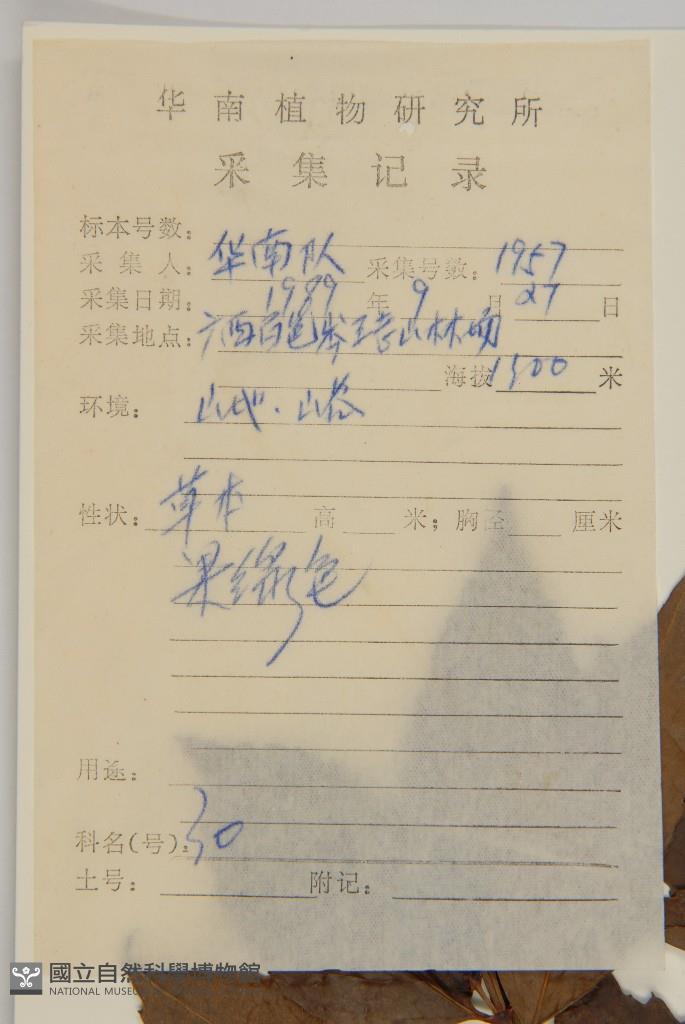 华南植物研究所
采集记录
标本号数：
采集人：华南队 采集号数：1957
采集日期：1989年9月27日
采集地点：广西百色岑王老山林场
海拔1300米
环境：山地·山谷
性状：草本 高 米；胸径 厘米
果绿色
用途：
科名(号)：30
土号： 附记：
國立自然科學博物館
NATIONAL MUSEUM